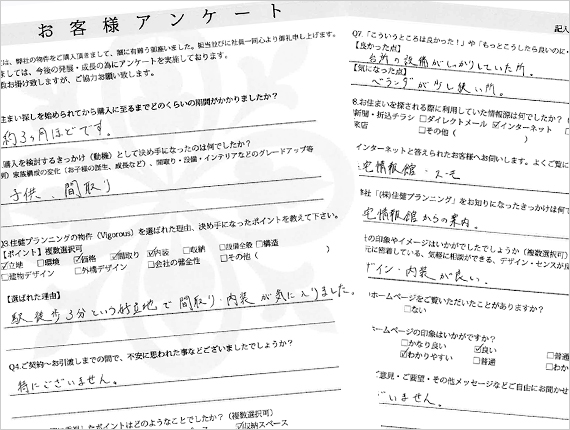 お客様アンケート
は、弊社の物件をご購入頂きまして、誠に有難う御座いました。担当並びに社員一同心より御礼申し上げます。
ましては、今後の発展・成長の為にアンケートを実施しております。
お掛け致しますが、ご協力お願い致します。
住まい探しを始められてから購入に至るまでどのくらいの期間がかかりましたか?
約3ヶ月ほどです。
購入を検討するきっかけ(動機)として決め手になったのは何でしたか?
例)家族構成の変化(お子様の誕生、成長など)、間取り・設備・インテリアなどのグレードアップ等
子供、間取り
Q3.住健プランニングの物件(Vigorous)を選ばれた理由、決め手になったポイントを教えて下さい。
【ポイント】複数選択可
☑立地 □環境 ☑価格 ☑間取り ☑内装 □収納 □設備全般 □構造
□建物デザイン □外構デザイン □会社の健全性 □その他( )
【選ばれた理由】
駅徒歩3分という好立地で間取り・内装が気に入りました。
Q4.ご契約〜お引渡しまでの間で、不安に思われた事などございましたでしょうか?
特にございません。
したポイントはどのようなことでしたか?(複数選択可)
☑収納スペース
記入
Q7.「こういうところは良かった!」や「もっとこうしたら良いのに・
【良かった点】
台所の設備がしっかりしていた所。
【気になった点】
ベランダが少し狭い所。
8.お住まいを探される際に利用していた情報源は何でしたか?
新聞・折込チラシ □ダイレクトメール ☑インターネット
来店 □その他(
インターネットと答えられたお客様へお伺いします。よくご覧に
宅情報館・スーモ
社「(株)住健プランニング」をお知りになったきっかけは何で
宅情報館からの案内。
社の印象やイメージはいかがでしたでしょうか(複数選択可)
元に密着している、気軽に相談ができる、デザイン・センスが良
ザイン・内装が良い。
ホームページをご覧いただいたことがありますか?
□ない
ホームページの印象はいかがですか?
□かなり良い ☑良い □普通
☑わかりやすい □普通 □わか
意見・ご要望・その他メッセージなどご自由にお聞かせ
ざいません。